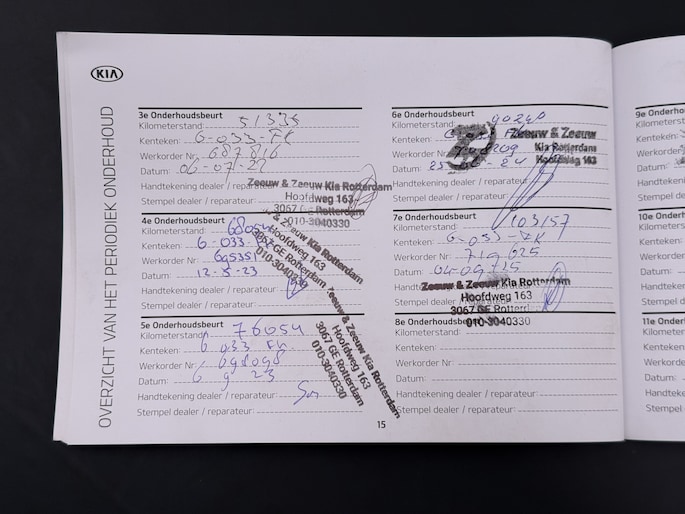 KIA
OVERZICHT VAN HET PERIODIEK ONDERHOUD
3e Onderhoudsbeurt
Kilometerstand: 51335
Kenteken: G-033-FK
Werkorder Nr: 687816
Datum: 06-07-22
Handtekening dealer / reparateur:
Stempel dealer / reparateur:
Zeeuw & Zeeuw Kia Rotterdam
Hoofdweg 163
3067 GE Rotterdam
010-3040330
4e Onderhoudsbeurt
Kilometerstand: 68054
Kenteken: G-033-FK
Werkorder Nr: 695351
Datum: 12-5-23
Handtekening dealer / reparateur:
Stempel dealer / reparateur:
Zeeuw & Zeeuw Kia Rotterdam
Hoofdweg 163
3067 GE Rotterdam
010-3040330
5e Onderhoudsbeurt
Kilometerstand: 76054
Kenteken: G 033 FK
Werkorder Nr: 698098
Datum: 6 9 23
Handtekening dealer / reparateur:
Stempel dealer / reparateur:
Zeeuw & Zeeuw Kia Rotterdam
Hoofdweg 163
3067 GE Rotterdam
010-3040330
6e Onderhoudsbeurt
Kilometerstand: 90240
Kenteken:
Werkorder Nr: 708209
Datum:
Handtekening dealer / reparateur:
Stempel dealer / reparateur:
Zeeuw & Zeeuw
Kia Rotterdam
Hoofdweg 163
7e Onderhoudsbeurt
Kilometerstand: 103157
Kenteken: G-033-FK
Werkorder Nr: 719625
Datum: 04-09-25
Stempel dealer / reparateur:
Zeeuw & Zeeuw Kia Rotterdam
Hoofdweg 163
3067 GE Rotterdam
010-3040330
8e Onderhoudsbeurt
Kilometerstand:
Kenteken:
Werkorder Nr:
Datum:
Handtekening dealer / reparateur:
Stempel dealer / reparateur:
15
9e Onderho
Kilometerst
Kenteken:
Werkorder
Datum:
Handteken
Stempel de
10e Onder
Kilometers
Kenteken
Werkord
Datum:
Handtek
Stempel
11e Ond
Kilomet
Kentek
Werko
Datum
Handt
Stem